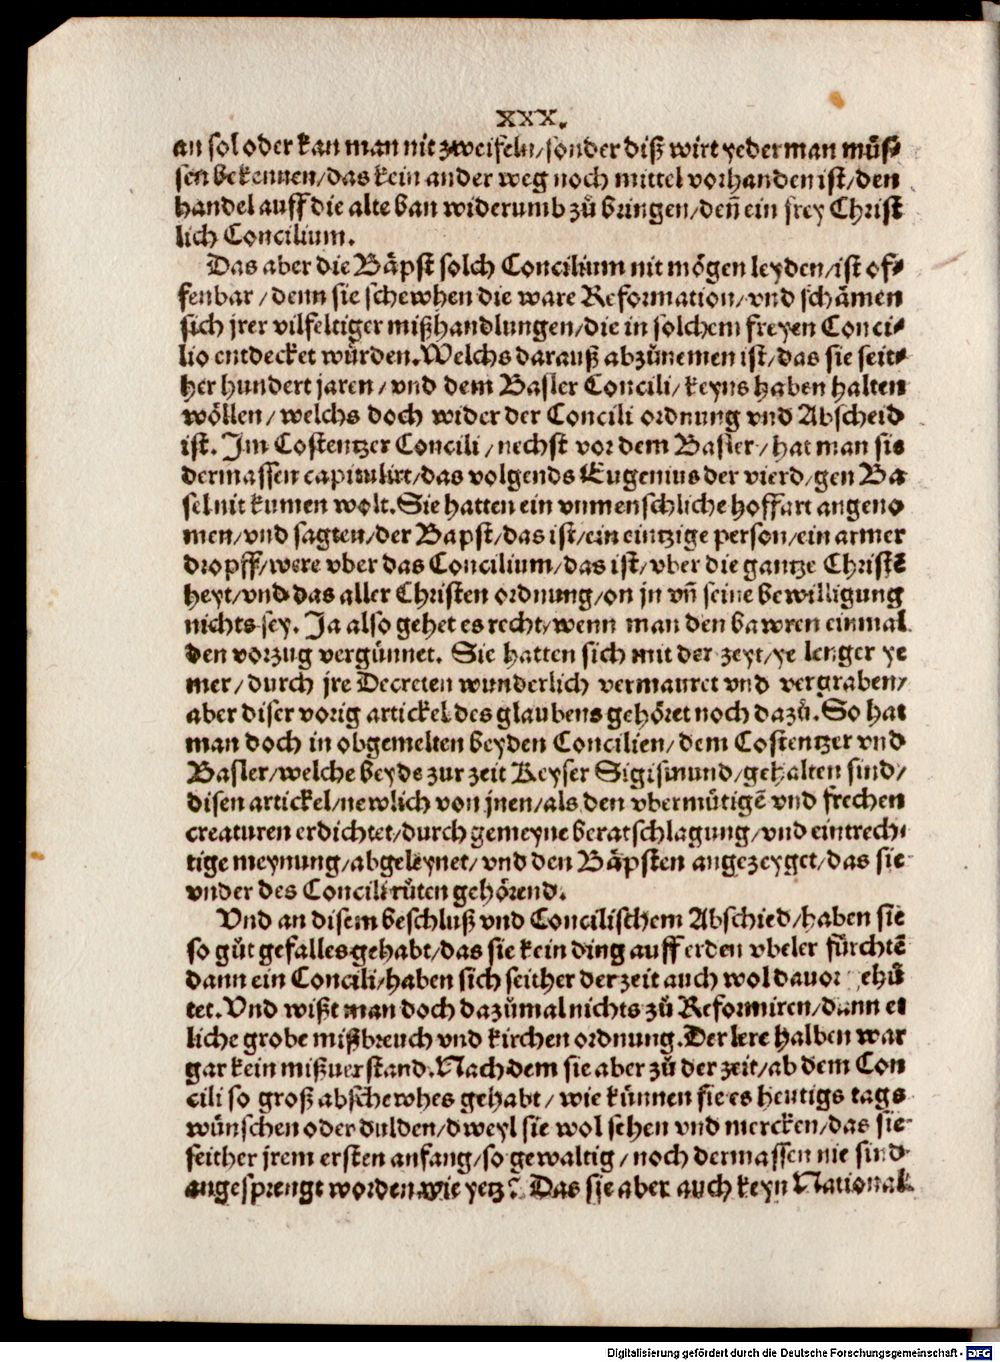 XXX.
an sol oder kan man nit zweifeln/sonder diß wirt yederman müs⸗
sen bekennen/das kein ander weg noch mittel vorhanden ist/den
handel auff die alte ban widerumb zů bringen/deñ ein frey Christ
lich Concilium.
Das aber die Bäpst solch Concilium nit mögen leyden/ist of⸗
fenbar/denn sie schewhen die ware Reformation/vnd schämen
sich jrer vilfeltiger mißhandlungen/die in solchem freyen Conci⸗
lio entdecket würden.Welchs darauß abzůnemen ist/das sie seit⸗
her hundert jaren/vnd dem Basler Concili/keyns haben halten
wöllen/welchs doch wider der Concili ordnung vnd Abscheid
ist. Im Costentzer Concili/nechst vor dem Basler/hat man sie
dermassen capitulirt/das volgends Eugenius der vierd/gen Ba
sel nit kumen wolt.Sie hatten ein vnmenschliche hoffart angeno
men/vnd sagten/der Bapst/das ist/ein eintzige person/ein armer
dropff/were vber das Concilium/das ist/vber die gantze Christē
heyt/vnd das aller Christen ordnung/on jn vñ seine bewilligung
nichts sey. Ja also gehet es recht/wenn man den bawren einmal
den vorzug vergünnet. Sie hatten sich mit der zeyt/ye lenger ye
mer/durch jre Decreten wunderlich vermauret vnd vergraben/
aber diser vorig artickel des glaubens gehöret noch dazů.So hat
man doch in obgemelten beyden Concilien/dem Costentzer vnd
Basler/welche beyde zur zeit Keyser Sigismund/gehalten sind/
disen artickel/newlich von jnen/als den vbermütigē vnd frechen
creaturen erdichtet/durch gemeyne beratschlagung/vnd eintrech⸗
tige meynung/abgeleynet/vnd den Bäpsten angezeyget/das sie
vnder des Concili růten gehörend.
Vnd an disem beschluß vnd Concilischem Abschied/haben sie
so gůt gefalles gehabt/das sie kein ding auff erden vbeler fürchtē
dann ein Concili/haben sich seither der zeit auch wol dauor ehů
tet.Vnd wißt man doch dazůmal nichts zů Reformiren/dann et
liche grobe mißbreuch vnd kirchen ordnung.Der lere halben war
gar kein mißuerstand.Nach dem sie aber zů der zeit/ab dem Con
cili so groß abschewhes gehabt/wie künnen sie es heutigs tags
wünschen oder dulden/dweyl sie wol sehen vnd mercken/das sie
seither jrem ersten anfang/so gewaltig/noch dermassen nie sind
angesprengt worden wie yetz? Das sie aber auch keyn National
Digitalisierung gefördert durch die Deutsche Forschungsgemeinschaft - DFG